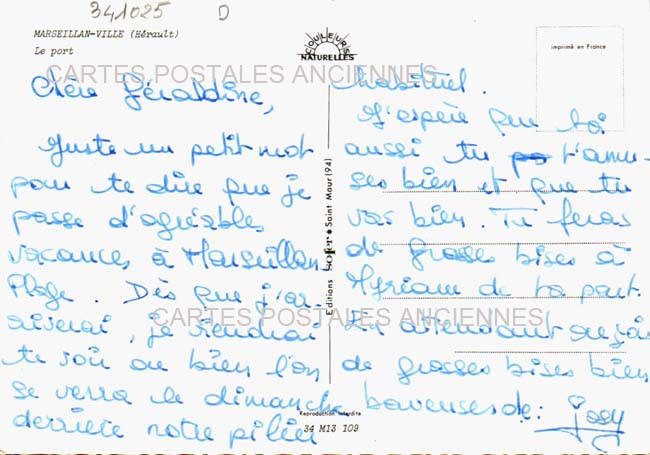 341025 D
MARSEILLAN-VILLE (Hérault)
Le port
COULEURS
NATURELLES
imprimé en France
CARTES POSTALES ANCIENNES
Chère Géraldine,
Juste un petit mot
pour te dire que je
passe d'agréables
vacances à Marseillan-
Plage. Dès que j'ar-
riverai, je viendrai
te voir ou bien l'on
se verra le dimanche
derrière notre pilier
habituel.
J'espère que toi
aussi tu t'amu-
ses bien et que tu
vas bien. Tu feras
de grosses bises à
Myriam de ma part.
En attendant reçois
de grosses bises bien
baveuses de : Josy
CARTES POSTALES ANCIENNES
Editions SOFER ★ Saint Maur (94)
Reproduction Interdite
34 M13 109